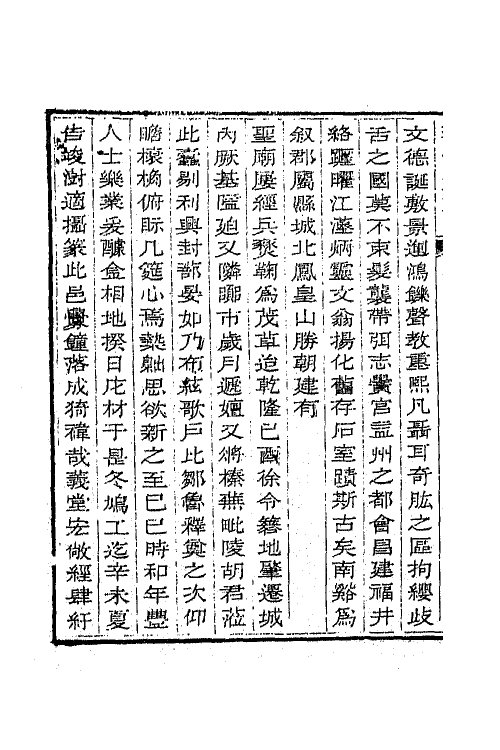 文德誕敷景迎鴻鑠聲教重熙凡聶耳奇肱之區拘纓歧
舌之國莫不束髮襲帶弭志黌宮益州之都會昌建福井
絡躔曜江藻炳靈文翁揚化舊存石室蹟斯古矣南谿爲
叙郡屬縣城北鳳皇山勝朝建有
聖廟屢經兵燹鞠爲茂草迨乾隆己酉徐令簉地肇遷城
內厥基隘廹又隣闤市歲月遞嬗又將榛蕪毗陵胡君蒞
此蠹剔利興封部晏如乃布絃歌戶比鄒魯釋奠之次仰
瞻榱桷俯眎几筵心焉槩衋思欲新之至己巳時和年豐
人士樂業爰醵金相地揆日庀材于是冬鳩工迄辛未夏
告竣澍適攝篆此邑釁鐘落成猗褘哉義堂宏敞經肆紆